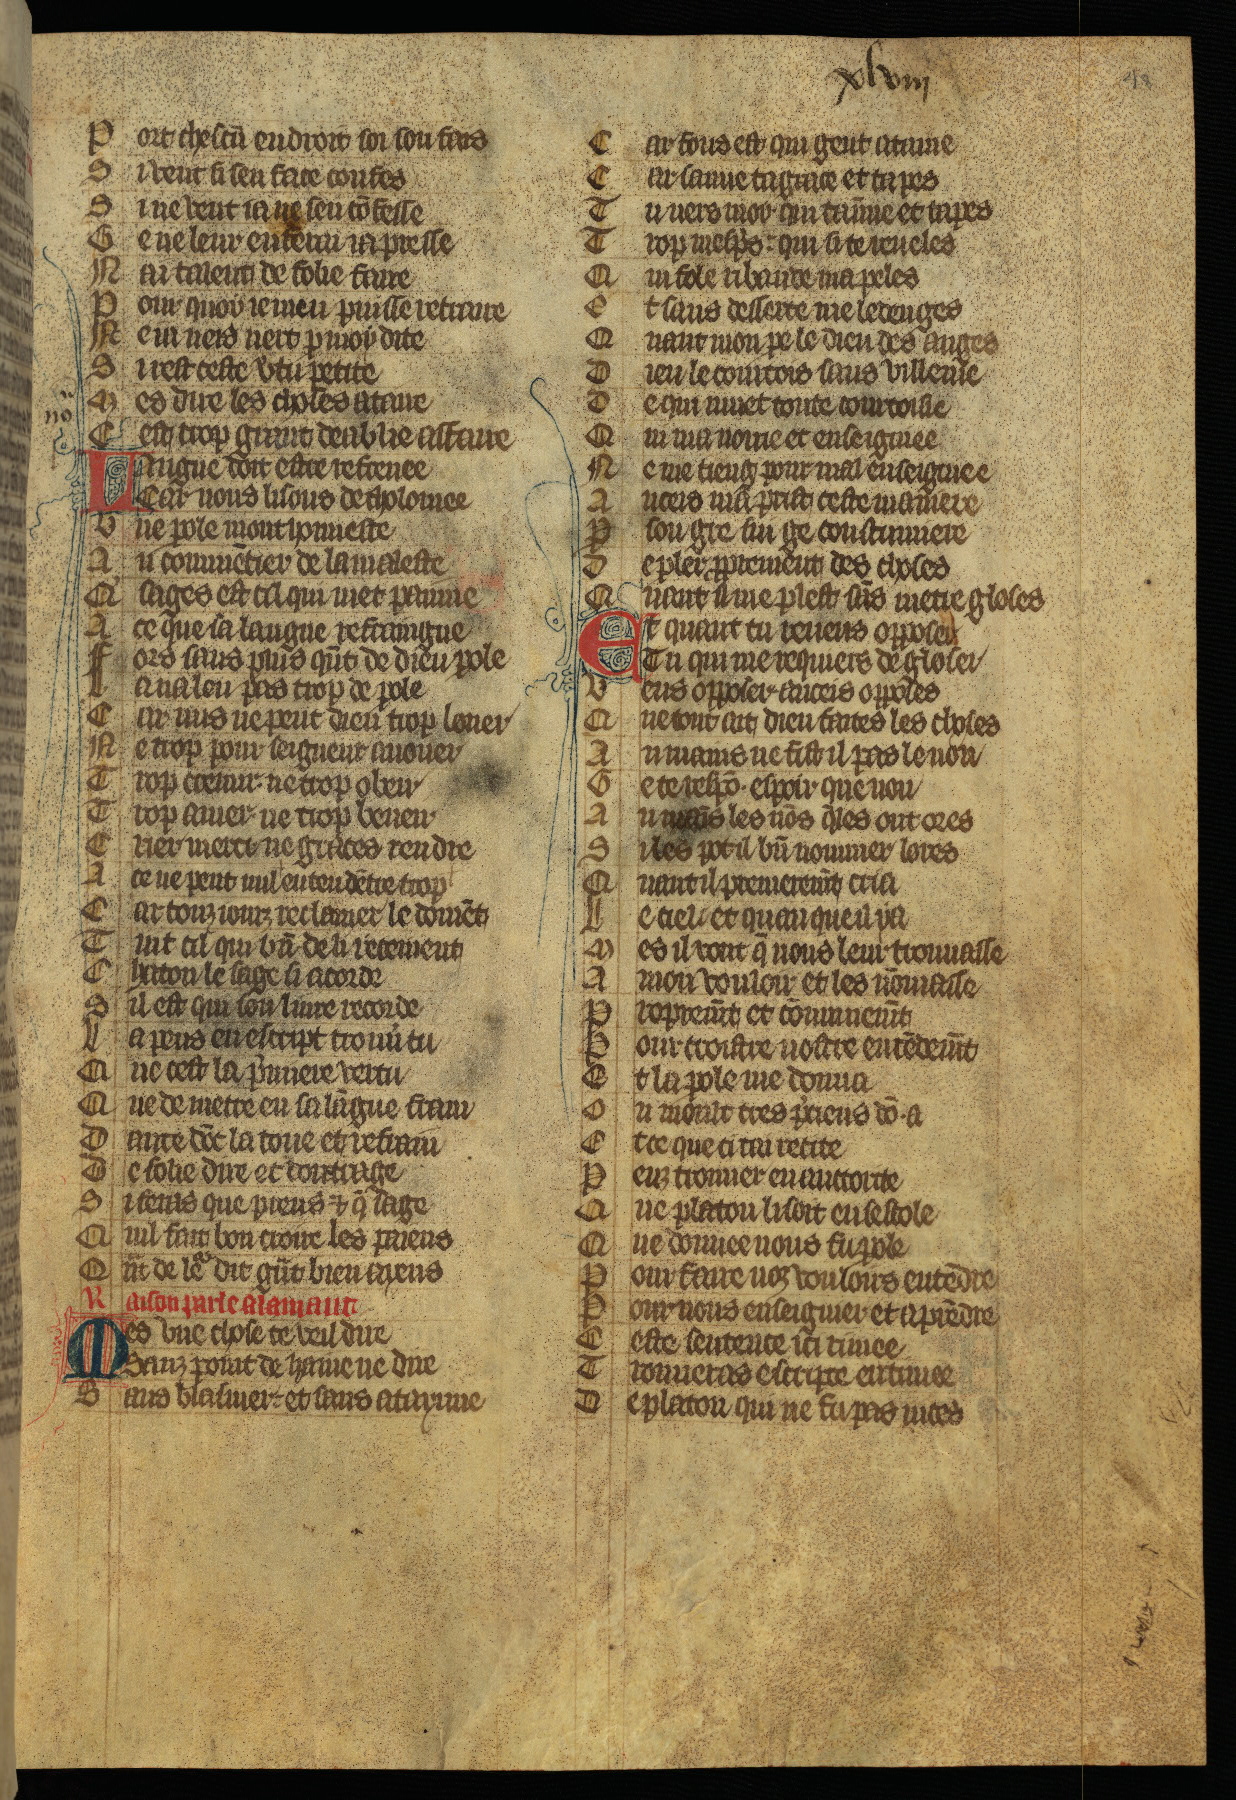 xlviii
48
Port chescū endroit soi son fais
Si veut si sen face confes
Si ne veut ia ne sen cōfesse
Ge ne leur en ferai ia presse
Nai talent de folie faire
Pour quoy ie men puisse retraire
Ne ia ners nert p moy dite
Si rest ceste v̾tu petite
Mes dire les choses a taire
no
Cest trop grant deablie a faire
Langue doit estre refrenee
Car nous lisons de tholomee
Vne pole mout honneste
Au commētier de lamageste
Q̄ sages est cil qui met painne
A ce que sa langue refraingne
Fors sans plus qn̄t de dieu pole
La na len pas trop de pole
Car nus ne peut dieu trop loner
Ne trop pour seigneur auouer
Trop cremir ne trop obeir
Trop amer ne trop beneir
Crier merci ne graces rendre
A ce ne peut nul entendētre trop
Car touz iourz reclamer le doiuēt
Tuit cil qui bn̄ de li recoiuent
Chaton le sage si acorde
Sil est qui son liure recorde
La peus en escript trouu̾ tu
Que cest la p̾miere vertu
Que de metre en sa lāgue frain
Dante dōc la toue et refrain
De folie dire et doutrage
Si feras que preus ⁊ q̄ sage
Quil fait bon croire les paiens
Qn̄t de le̾ dit gn̄t bien aiens
Raison parle a lamant
Mes vne chose te veil dire
Sanz point de haine ne dire
Sans blasmer et sans atayime
Car fous est qui gent ataine
Car sauue ta grace et ta pes
Tu uers moy qui taīme et tapes
Trop mesp̄s: qui si te reueles
Qui fole ribaude mapeles
Et sans desserte me ledenges
Quant mon pe le dieu des anges
Dieu le courtois sans villenie
De qui muet toute courtoisie
Qui ma norrie et enseignee
Ne me tieng pour mal enseignee
Aincois ma prist ceste maniere
P son gre sui ge coustumiere
De pler p̱prement des choses
Quant il me plest sās metre gloses
Et quant tu reuiens opposer
Tu qui me requiers de gloser
Veus opposer aincois opposes
Que tout ait dieu faites les choses
Au mains ne fist il pas le non
Ge te respō espoir que non
Au mains les nōs q̄les ont ores
Si les pot il bn̄ nommer lores
Quant il premieremt̄ cria
Le ciel et quanque il ya
Mes il vout q̄ nous leur trouuasse
A mon vouloir et les nōmasse
Propremt̄ et cōmunemt̄
Pour croistre nostre entēdemt̄
Et la pole me donna
Ou moult tres p̾cieus dō a
Et ce que ci tai recite
Peuz trouuer en auctorite
Que platon lisoit en sescole
Que donnee nous fu pole
Pour faire noz vouloirs entēdre
Pour nous enseignier et a prēdre
Ceste sentence ici rimee
Trouueras escripte en timee
De platon qui ne fu pas nices